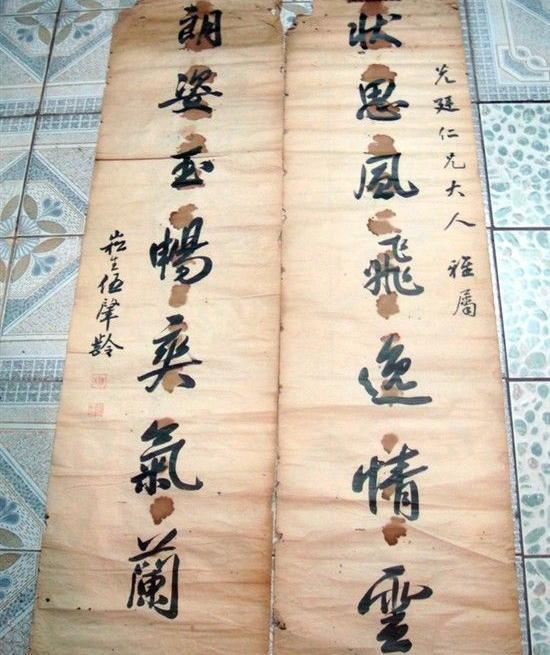 光廷仁兄大人雅屬
状思風飛逸情雲
朗姿玉暢爽氣蘭
崧生伍肇齡